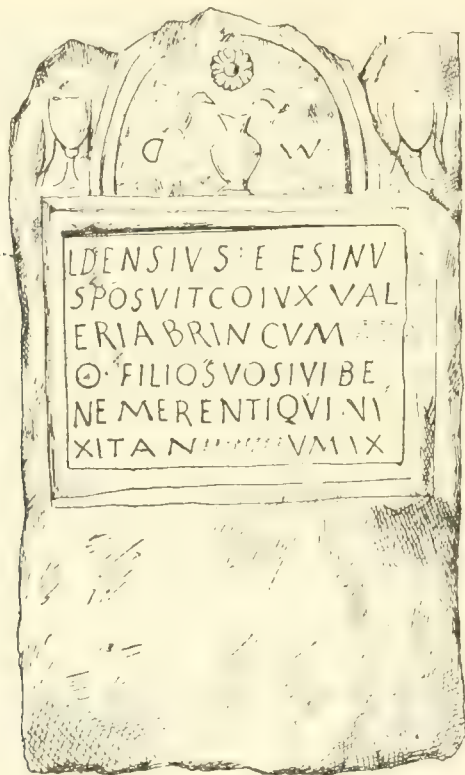 D M
LDENSIVS E ESINV
SPOSVITCOIVX VAL
ERIA BRIN CVM
Θ· FILIO SVO SIVI BE
NE MERENTI QVI · VI
XIT AN VM IX